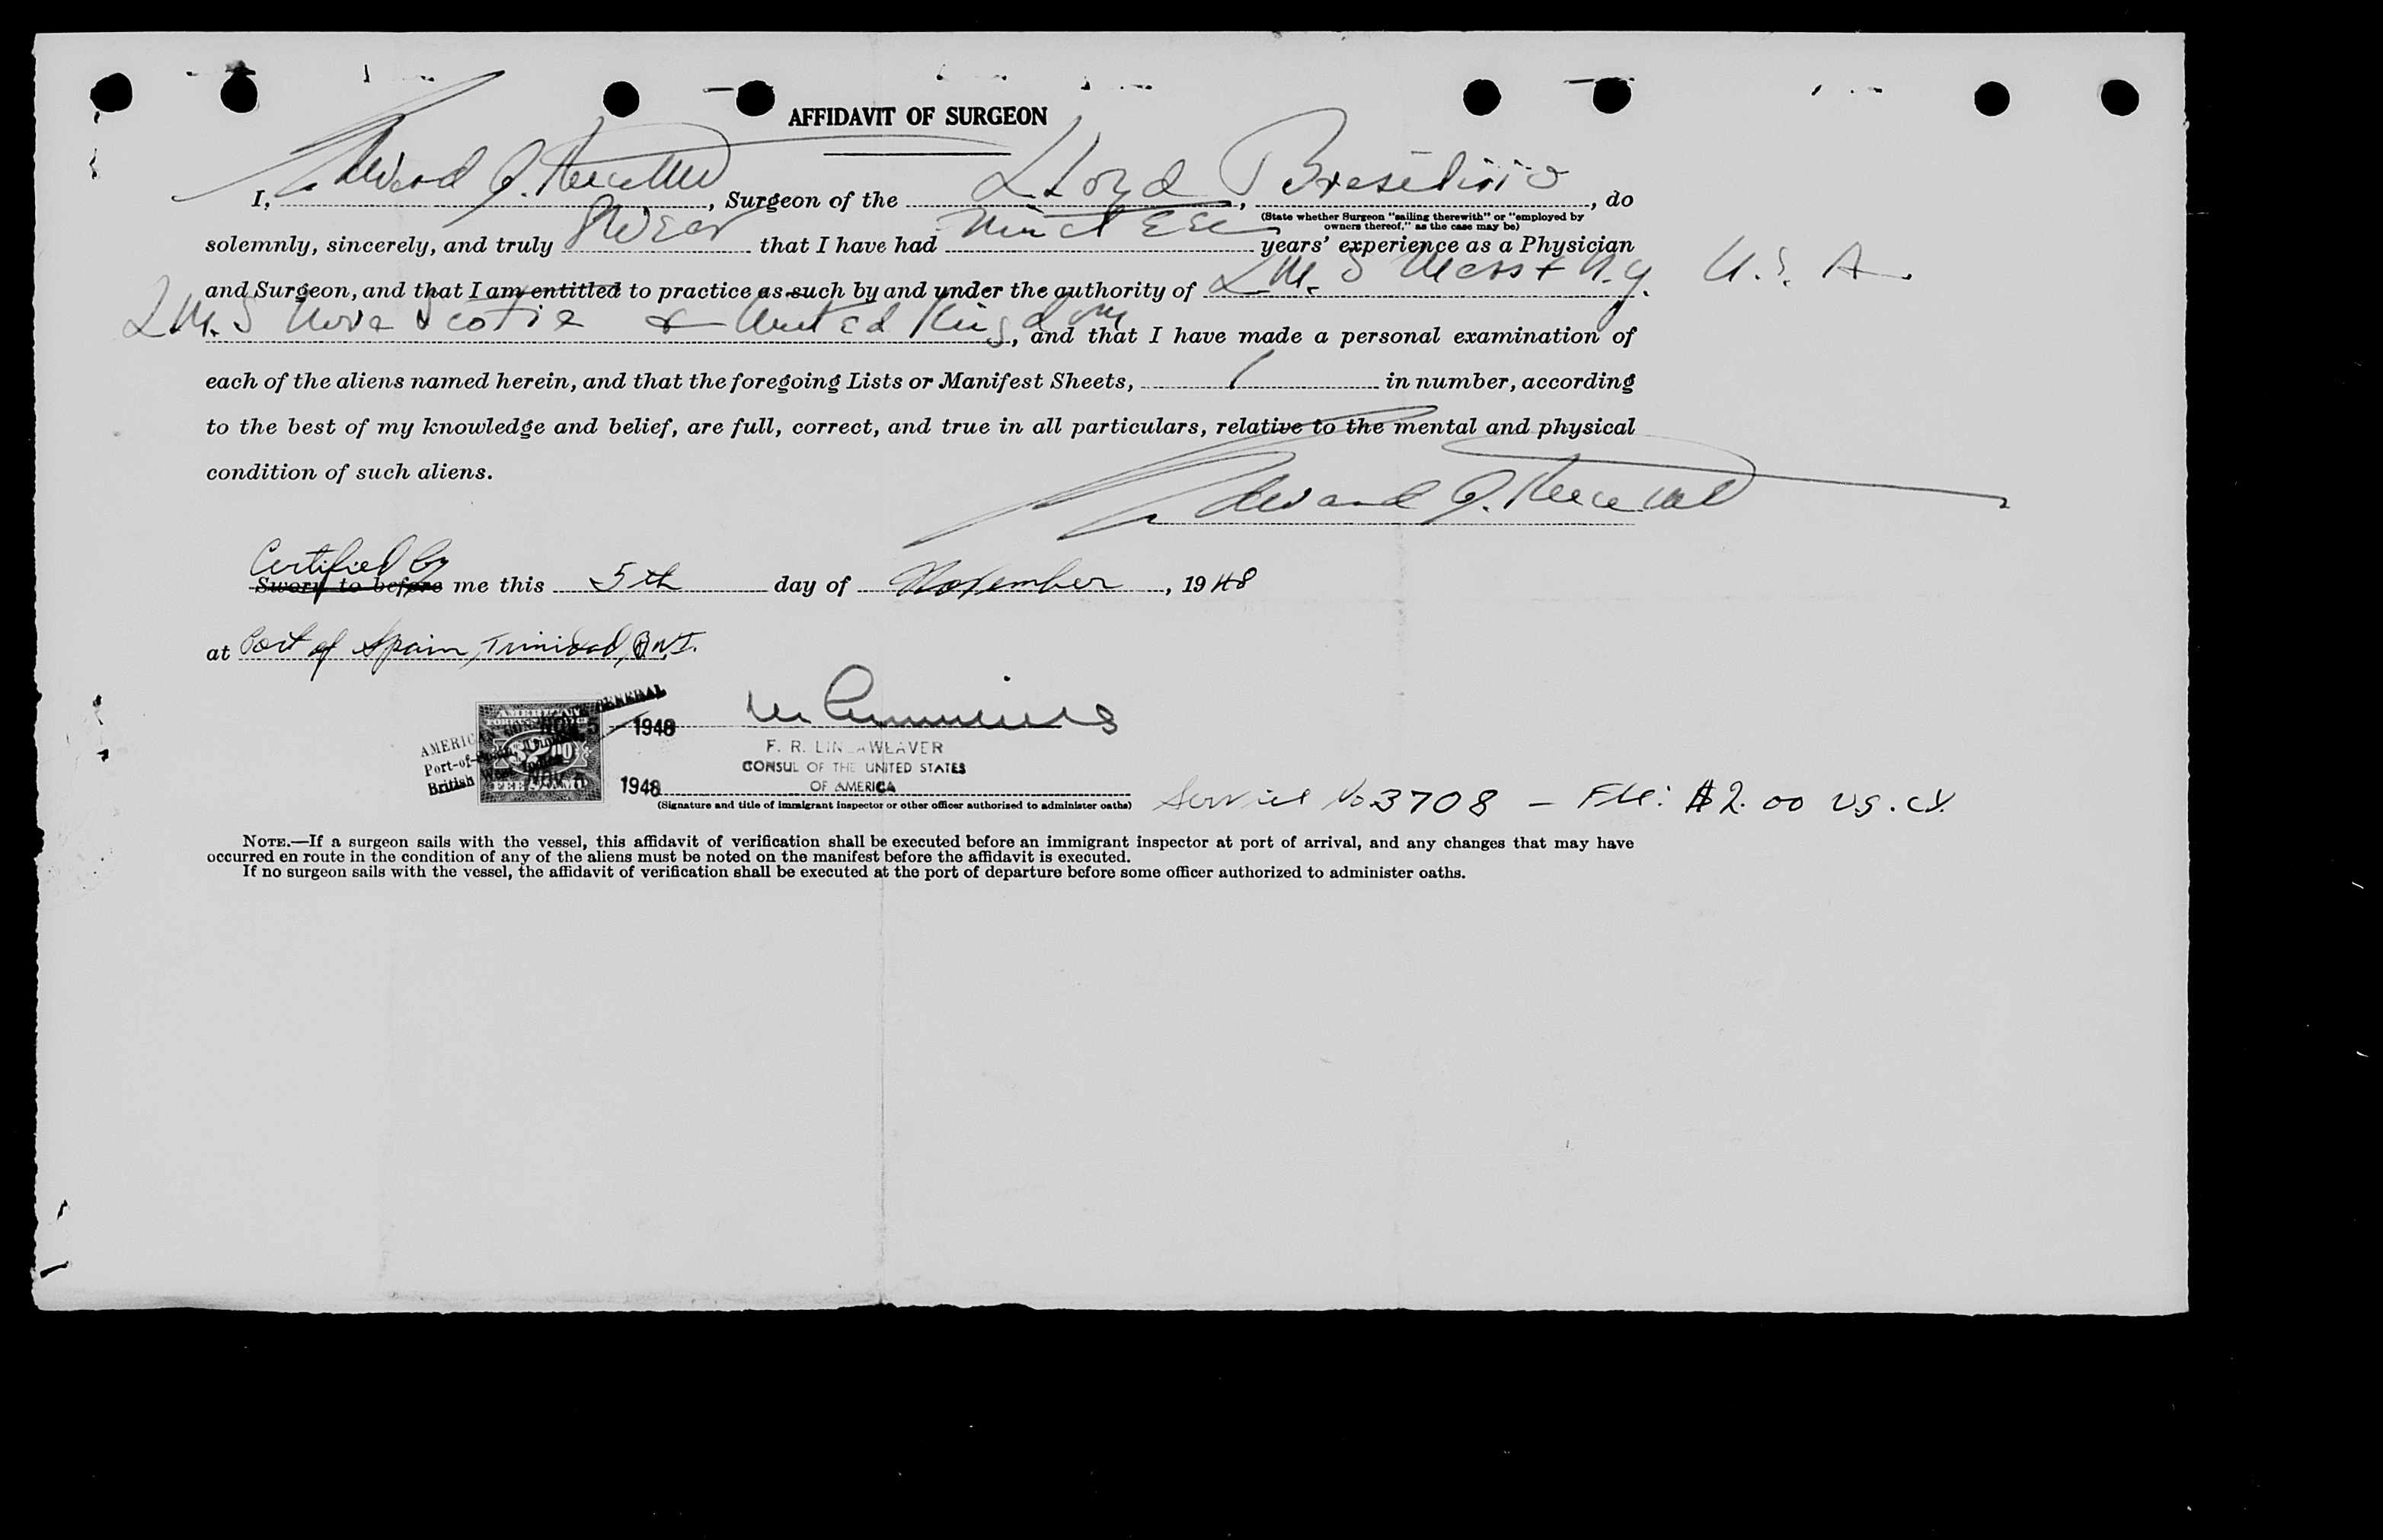 AFFIDAVIT OF SURGEON
I, Edward J., Surgeon of the Lloyd Brasileiro, do
(State whether Surgeon "sailing therewith" or "employed by
owners thereof," as the case may be)
solemnly, sincerely, and truly swear that I have had Nineteen years' experience as a Physician
and Surgeon, and that I am entitled to practice as such by and under the authority of L.M.S Mass + N.Y. U.S.A.
L.M.S Nova Scotia & United Kingdom, and that I have made a personal examination of
each of the aliens named herein, and that the foregoing Lists or Manifest Sheets, 1 in number, according
to the best of my knowledge and belief, are full, correct, and true in all particulars, relative to the mental and physical
condition of such aliens.
Edward J.
Certified by
Sworn to before me this 5th day of November, 1948
at Port of Spain, Trinidad, B.W.I.
AMERICAN GENERAL
NOV 5 1948
AMERICAN
$2.00
Port-of-
British West Indies
FEE STAMP
NOV 5 1948
F. R. LINEAWEAVER
CONSUL OF THE UNITED STATES
OF AMERICA
(Signature and title of immigrant inspector or other officer authorized to administer oaths)
Service No 3708 — Fee: $2.00 U.S. cy.
NOTE.—If a surgeon sails with the vessel, this affidavit of verification shall be executed before an immigrant inspector at port of arrival, and any changes that may have
occurred en route in the condition of any of the aliens must be noted on the manifest before the affidavit is executed.
If no surgeon sails with the vessel, the affidavit of verification shall be executed at the port of departure before some officer authorized to administer oaths.